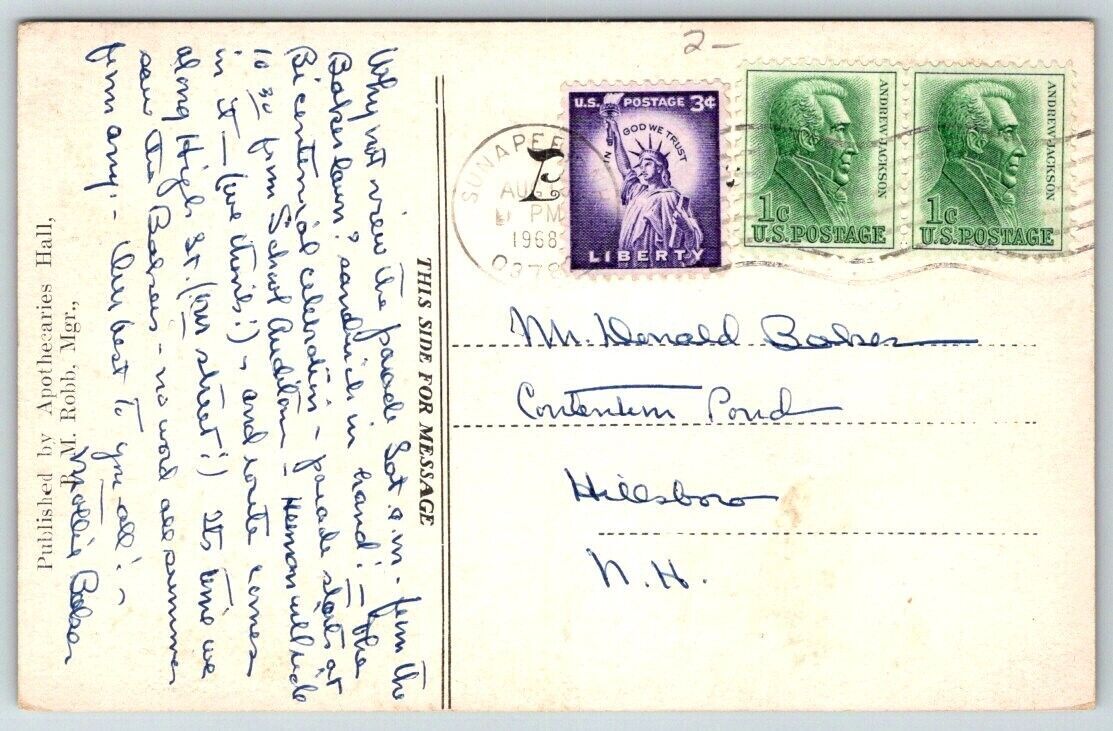 Why not view the parade Sat a.m. from the
Baker lawn, sandwich in hand! – The
Bicentennial celebration – parade starts at
10 30 from School Auditorium – Herman will ride
in it – (we think!), and route comes
along High St. (our street!) Its time we
saw the Bakers – no word all summer
from any. – Our best to you all! –
Mollie Baker
Published by Apothecaries Hall,
R. M. Robb, Mgr.,
THIS SIDE FOR MESSAGE
2-
SUNAPEE
AUG
PM
1968
0378
U.S. POSTAGE 3¢
IN GOD WE TRUST
LIBERTY
ANDREW JACKSON
1c
U.S. POSTAGE
ANDREW JACKSON
1c
U.S. POSTAGE
Mr. Donald Baker
Contention Pond
Hillsboro
N.H.